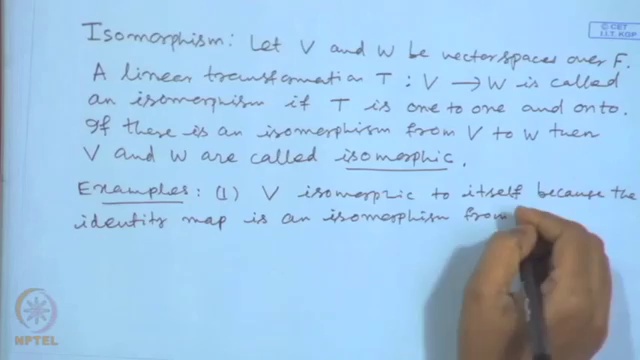 © CET
I.I.T. KGP
Isomorphism: Let V and W be vector spaces over F.
A linear transformation T : V → W is called
an isomorphism if T is one to one and onto.
If there is an isomorphism from V to W then
V and W are called isomorphic.
Examples: (1) V isomorphic to itself because the
identity map is an isomorphism from
NPTEL